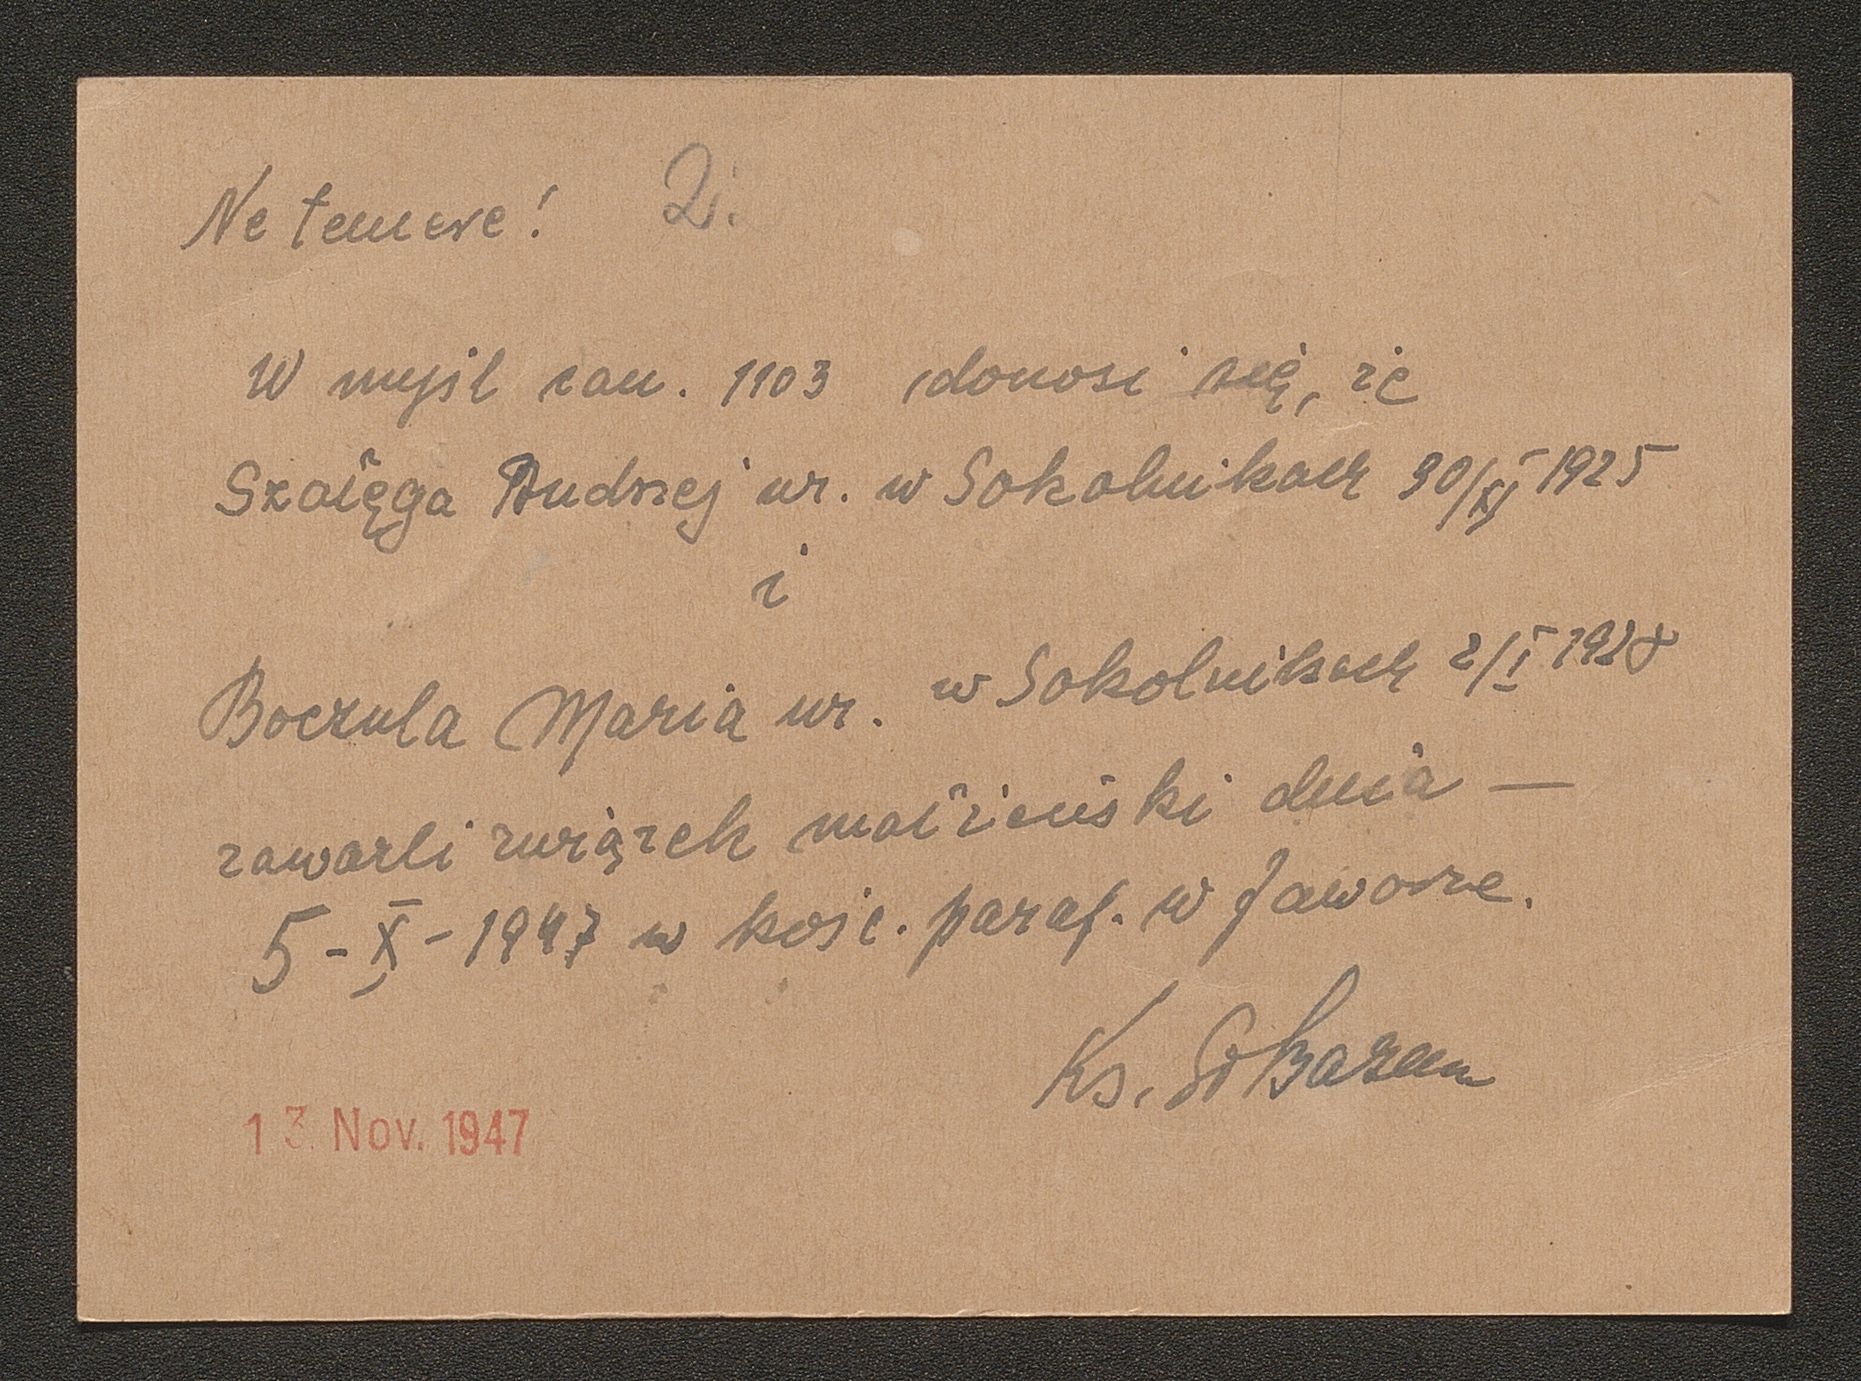 Ne temere! 2.
W myśl can. 1103 donosi się, że
Szałęga Andrzej ur. w Sokolnikach 30/XI 1925
i
Boczula Maria ur. w Sokolnikach 2/I 1928
zawarli związek małżeński dnia —
5-X-1947 w kośc. paraf. w Jaworze.
Ks.
13. Nov. 1947